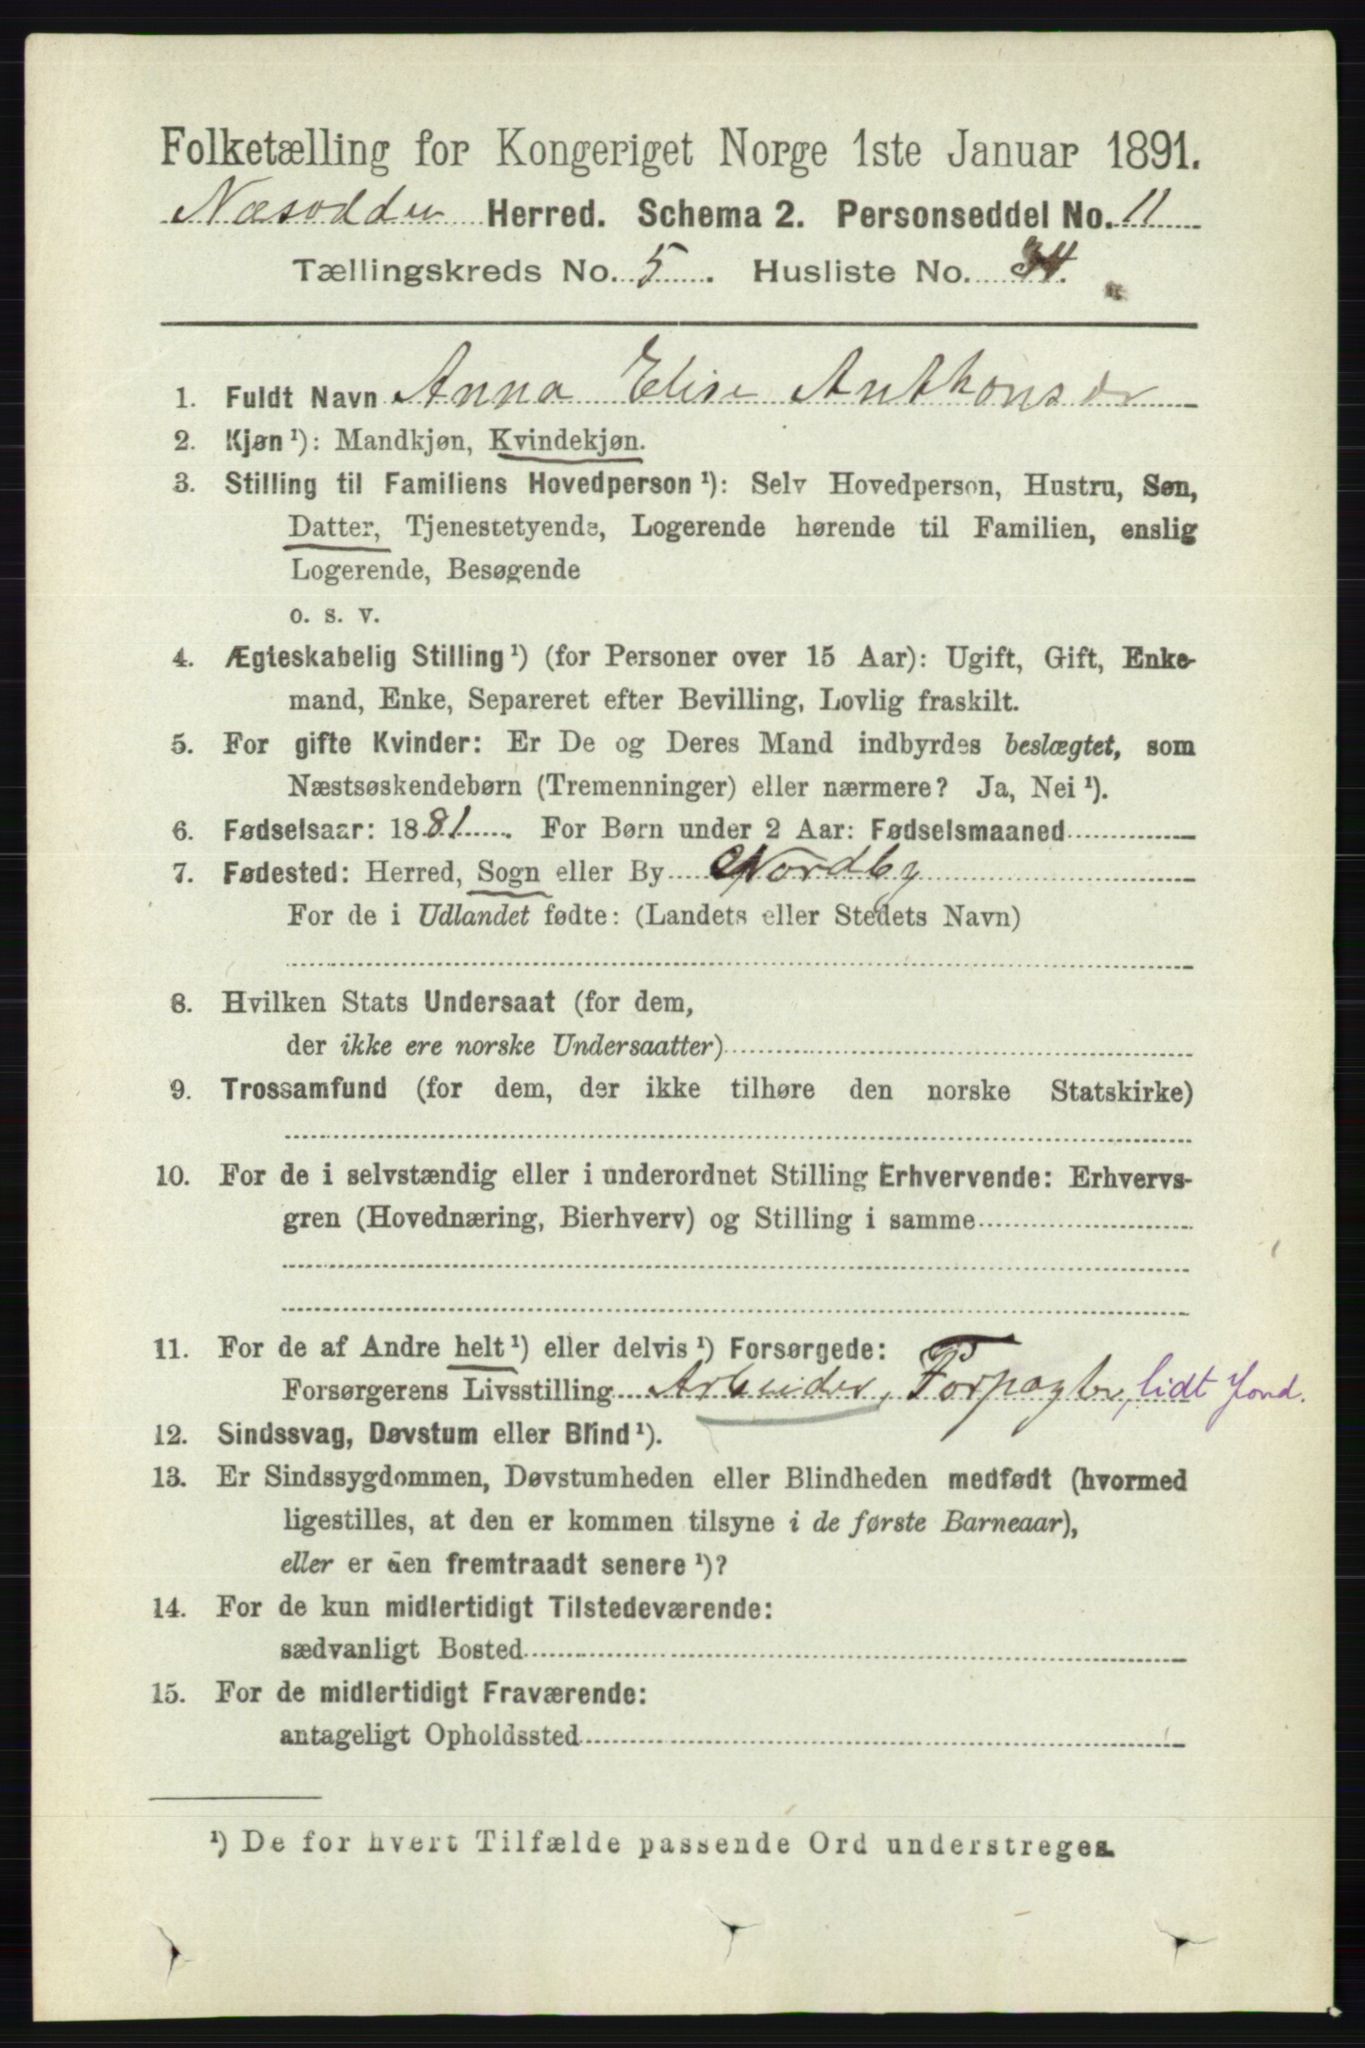 Folketælling for Kongeriget Norge 1ste Januar 1891.
Næsodden Herred. Schema 2. Personseddel No. 11
Tællingskreds No. 5. Husliste No. 34.
1. Fuldt Navn Anna Elise Anthonsdr
2. Kjøn ¹): Mandkjøn, Kvindekjøn.
3. Stilling til Familiens Hovedperson ¹): Selv Hovedperson, Hustru, Søn,
Datter, Tjenestetyende, Logerende hørende til Familien, enslig
Logerende, Besøgende
o. s. v.
4. Ægteskabelig Stilling ¹) (for Personer over 15 Aar): Ugift, Gift, Enke-
mand, Enke, Separeret efter Bevilling, Lovlig fraskilt.
5. For gifte Kvinder: Er De og Deres Mand indbyrdes beslægtet, som
Næstsøskendebørn (Tremenninger) eller nærmere? Ja, Nei ¹).
6. Fødselsaar: 1881. For Børn under 2 Aar: Fødselsmaaned
7. Fødested: Herred, Sogn eller By Nordby
For de i Udlandet fødte: (Landets eller Stedets Navn)
8. Hvilken Stats Undersaat (for dem,
der ikke ere norske Undersaatter)
9. Trossamfund (for dem, der ikke tilhøre den norske Statskirke)
10. For de i selvstændig eller i underordnet Stilling Erhvervende: Erhvervs-
gren (Hovednæring, Bierhverv) og Stilling i samme
11. For de af Andre helt ¹) eller delvis ¹) Forsørgede:
Forsørgerens Livsstilling Arbeider, Forpagter, lidt Jord.
12. Sindssvag, Døvstum eller Blind ¹).
13. Er Sindssygdommen, Døvstumheden eller Blindheden medfødt (hvormed
ligestilles, at den er kommen tilsyne i de første Barneaar),
eller er den fremtraadt senere ¹)?
14. For de kun midlertidigt Tilstedeværende:
sædvanligt Bosted
15. For de midlertidigt Fraværende:
antageligt Opholdssted
¹) De for hvert Tilfælde passende Ord understreges.